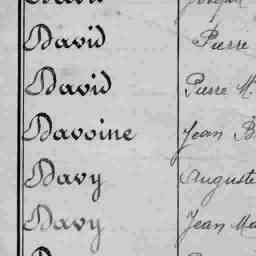 David Pierre
David Pierre M.
Davoine Jean B
Davy Auguste
Davy Jean Ma